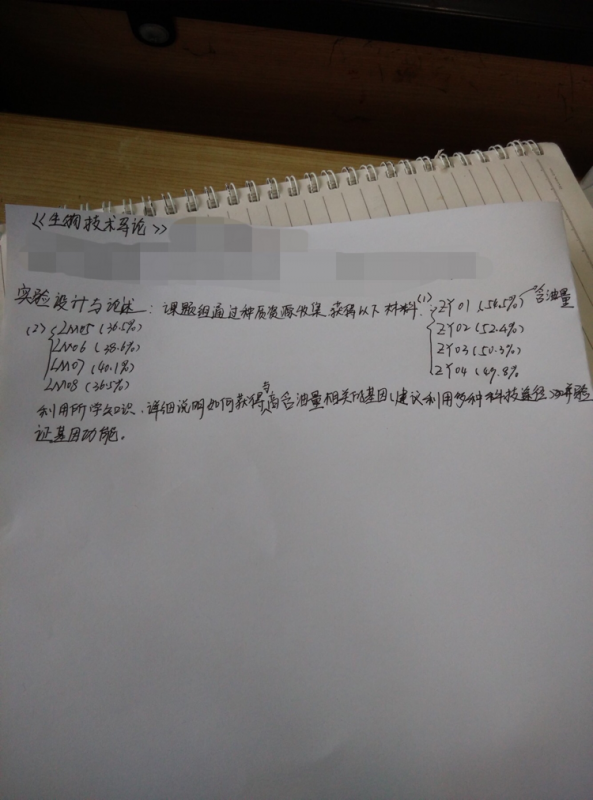 《生物技术导论》
实验设计与论述：课题组通过种质资源收集获得以下材料：(1) ZY01 (56.5%) 含油量
ZY02 (52.4%)
ZY03 (50.3%)
ZY04 (49.8%
(2) LM05 (36.5%)
LM06 (38.6%)
LM07 (40.1%)
LM08 (36.5%)
利用所学知识，详细说明如何获得与高含油量相关的基因(建议利用多种科技途径)并验
证基因功能。